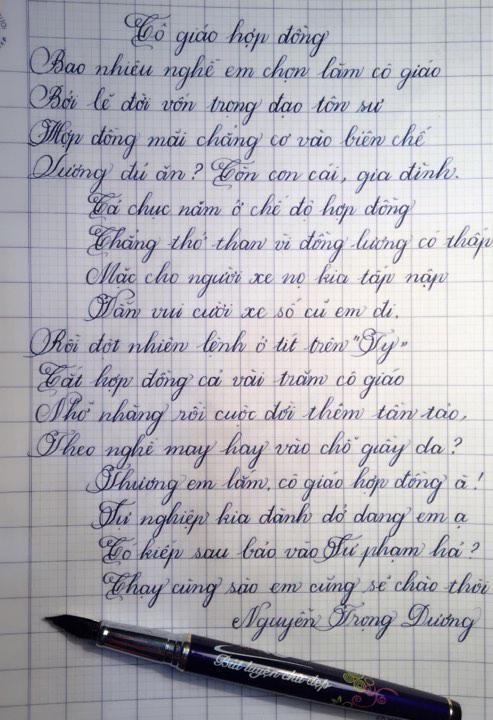 Cô giáo hợp đồng
Bao nhiêu nghề em chọn làm cô giáo
Bởi lẽ đời vốn trọng đạo tôn sư
Hợp đồng mãi chẳng cơ vào biên chế
Lương đủ ăn? Còn con cái, gia đình.
Cả chục năm ở chế độ hợp đồng
Chẳng thở than vì đồng lương có thấp
Mặc cho người xe nọ kia tấp nập
Vẫn vui cười xe số cũ em đi.
Rồi đột nhiên lệnh ở tít trên "Ty"
Cắt hợp đồng cả vài trăm cô giáo
Nhỡ nhàng rồi cuộc đời thêm tần tảo,
Theo nghề may hay vào chỗ giày da?
Thương em lắm, cô giáo hợp đồng à!
Sự nghiệp kia đành dở dang em ạ
Có kiếp sau bảo vào Sư phạm há?
Chạy cùng sào em cũng sẽ chào thôi
Nguyễn Trọng Dương
Bút luyện chữ đẹp